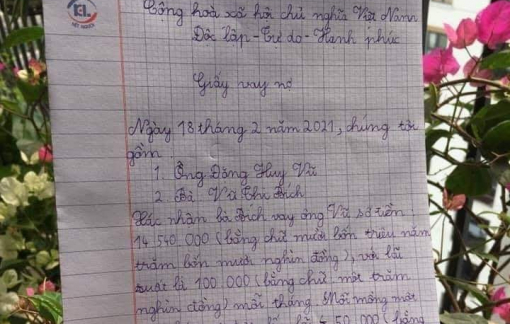 Cộng hoà xã hội chủ nghĩa Việt Nam
Độc lập - Tự do - Hạnh phúc
Giấy vay nợ
Ngày 18 tháng 2 năm 2021, chúng tôi
gồm
1. Ông Đặng Huy Vũ
2. Bà Vũ Thị Bích
Xác nhận bà Bích vay ông Vũ số tiền
14.540.000 (bằng chữ mười bốn triệu năm
trăm bốn mươi nghìn đồng), với lãi
suất là 100.000 (bằng chữ một trăm
nghìn đồng) mỗi tháng. Mỗi mồng một
50.000 (bằng